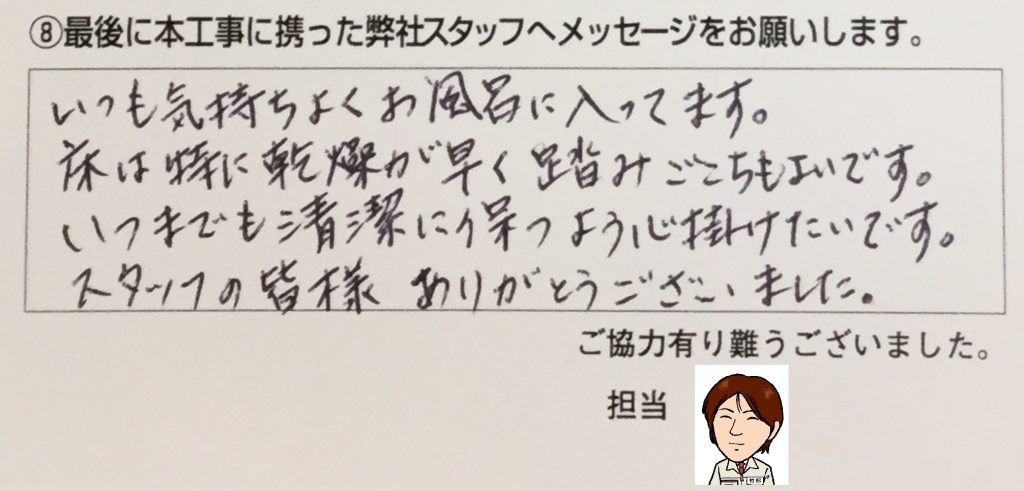 ⑧最後に本工事に携った弊社スタッフへメッセージをお願いします。
いつも気持ちよくお風呂に入ってます。
床は特に乾燥が早く踏みごこちもよいです。
いつまでも清潔に保つよう心掛けたいです。
スタッフの皆様 ありがとうございました。
ご協力有り難うございました。
担当